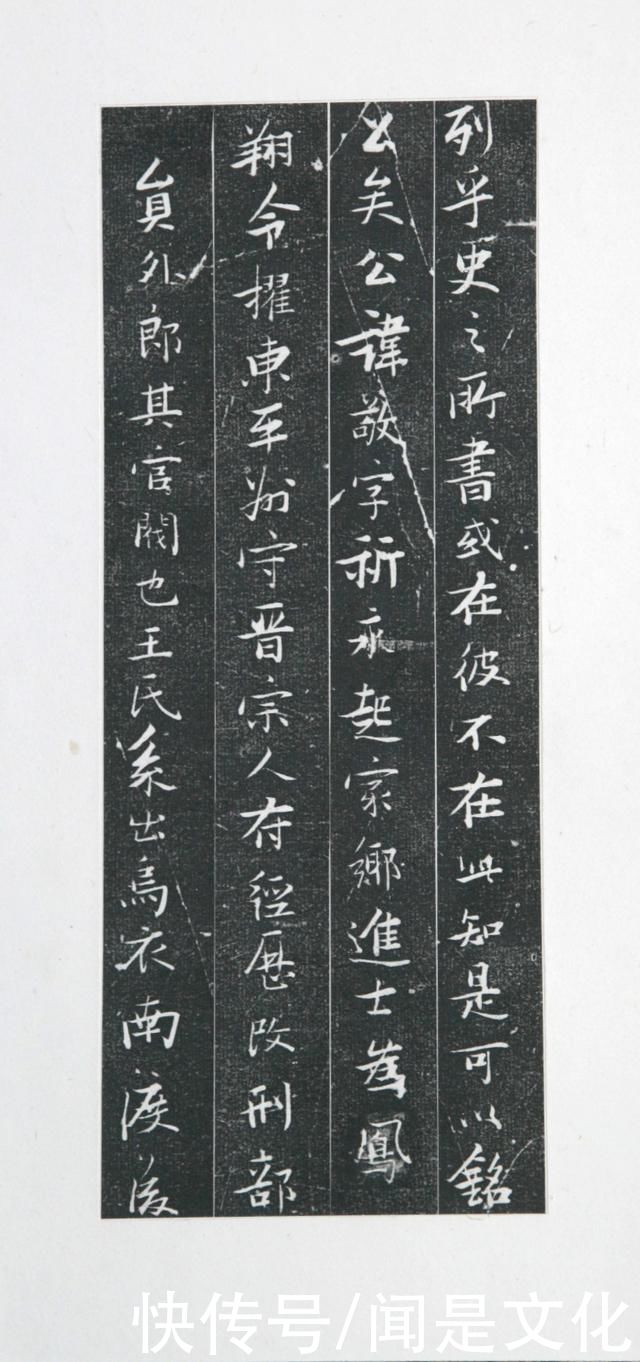 列乎史之所書或在彼不在此知是可以銘
公矣公諱敬字祈永起家鄉進士為鳳
翔令擢東平州守晋宗人府經歷改刑部
員外郎其官閥也王氏系出烏衣南渡後
快传号/闻是文化